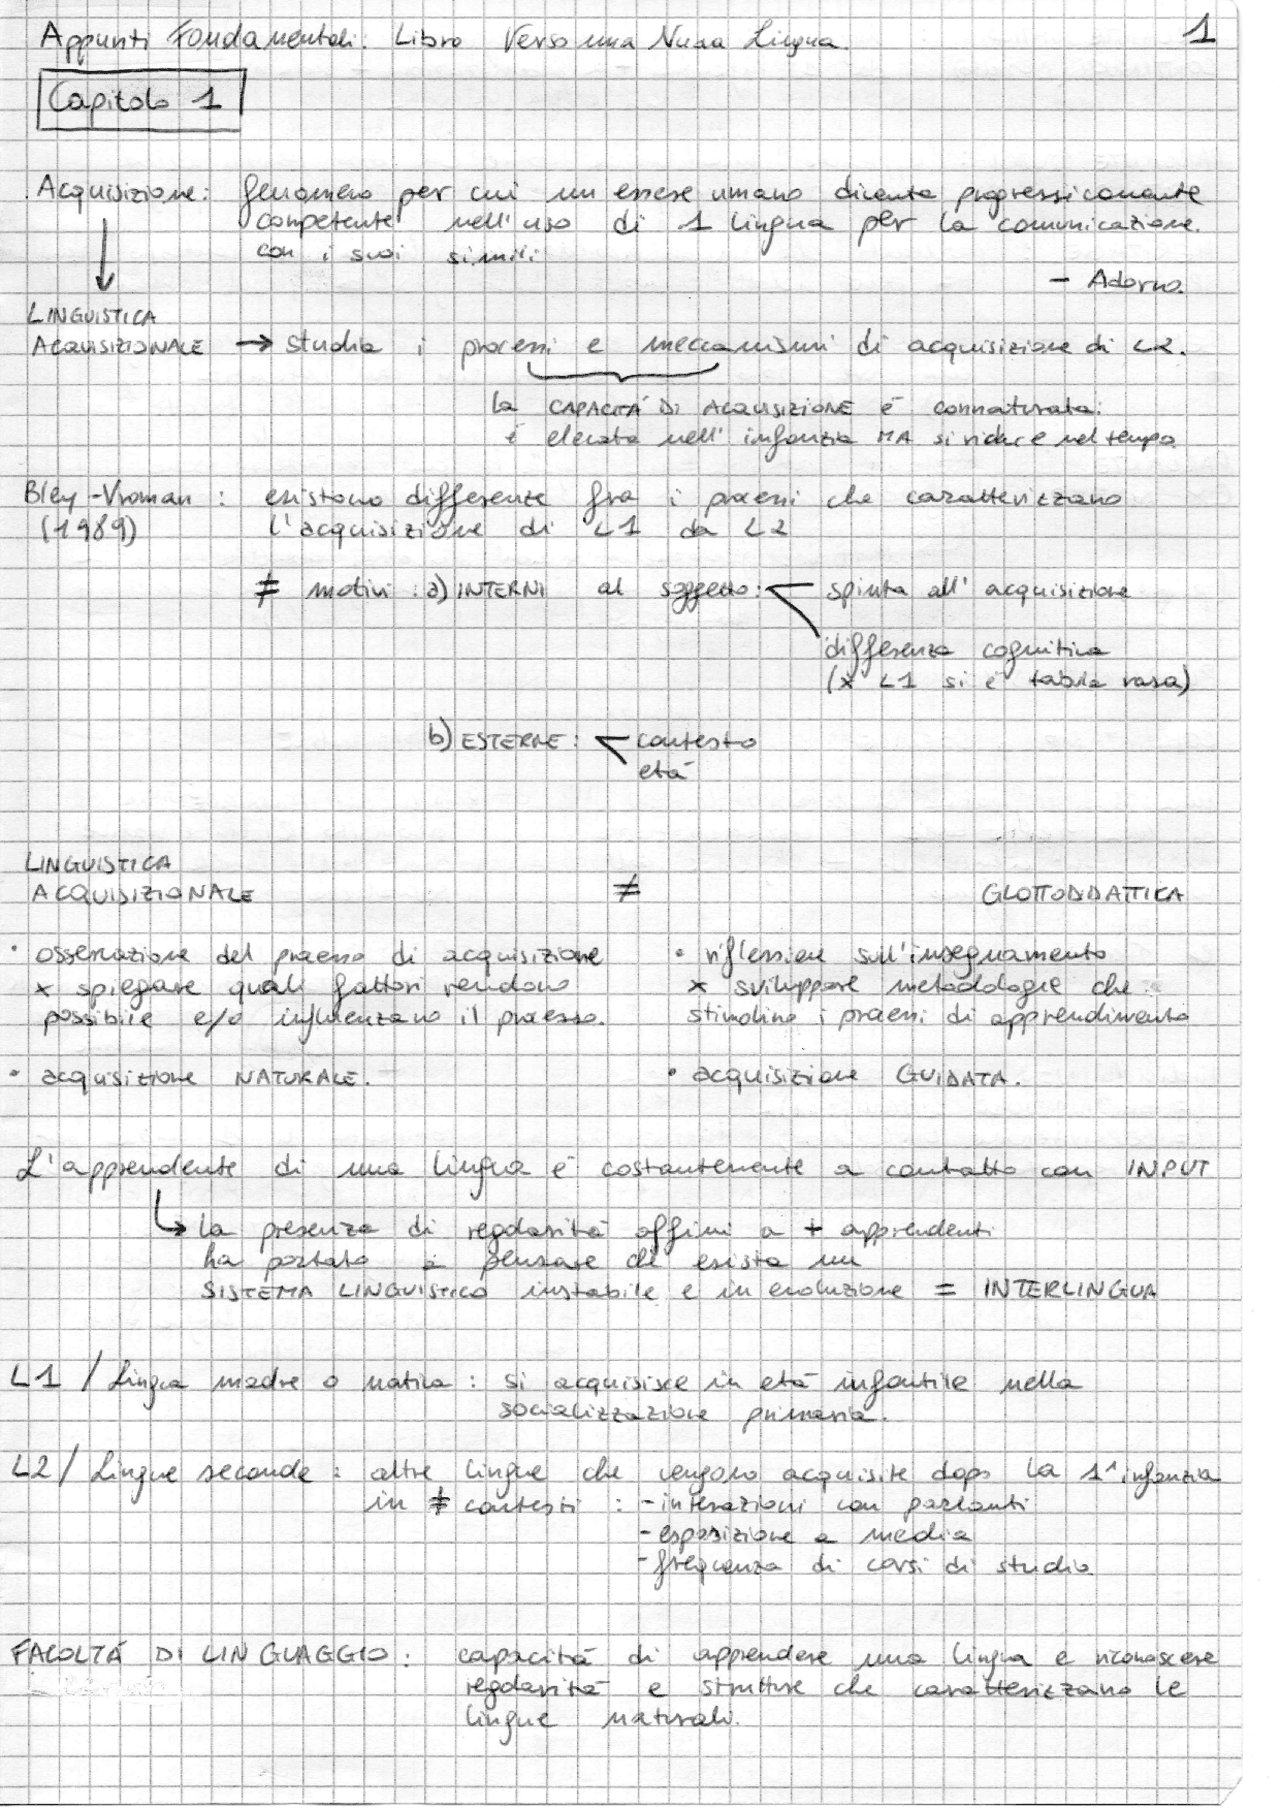 Appunti Fondamentali: Libro Verso una Nuova Lingua. 1
Capitolo 1
Acquisizione: fenomeno per cui un essere umano diventa progressivamente
competente nell'uso di 1 lingua per la comunicazione
con i suoi simili
- Adorno.
LINGUISTICA
ACQUISIZIONALE → studia i processi e meccanismi di acquisizione di L2.
la CAPACITÀ DI ACQUISIZIONE è connaturata:
è elevata nell'infanzia MA si riduce nel tempo
Bley-Vroman : esistono differenze fra i processi che caratterizzano
(1989) l'acquisizione di L1 da L2
≠ motivi : a) INTERNI al soggetto: spinta all'acquisizione
differenza cognitiva
(x L1 si è tabula rasa)
b) ESTERNE : contesto
età
LINGUISTICA
ACQUISIZIONALE ≠ GLOTTODIDATTICA
• osservazione del processo di acquisizione
x spiegare quali fattori rendono
possibile e/o influenzano il processo.
• acquisizione NATURALE.
• riflessione sull'insegnamento
x sviluppare metodologie che
stimolino i processi di apprendimento
• acquisizione GUIDATA.
L'apprendente di una lingua è costantemente a contatto con INPUT
↳ la presenza di regolarità affini a + apprendenti
ha portato a pensare che esista un
SISTEMA LINGUISTICO instabile e in evoluzione = INTERLINGUA
L1 / Lingua madre o nativa : si acquisisce in età infantile nella
socializzazione primaria.
L2 / Lingue seconde : altre lingue che vengono acquisite dopo la 1ª infanzia
in ≠ contesti : - interazioni con parlanti
- esposizione a media
- frequenza di corsi di studio.
FACOLTÀ DI LINGUAGGIO : capacità di apprendere una lingua e riconoscere
regolarità e strutture che caratterizzano le
lingue naturali.